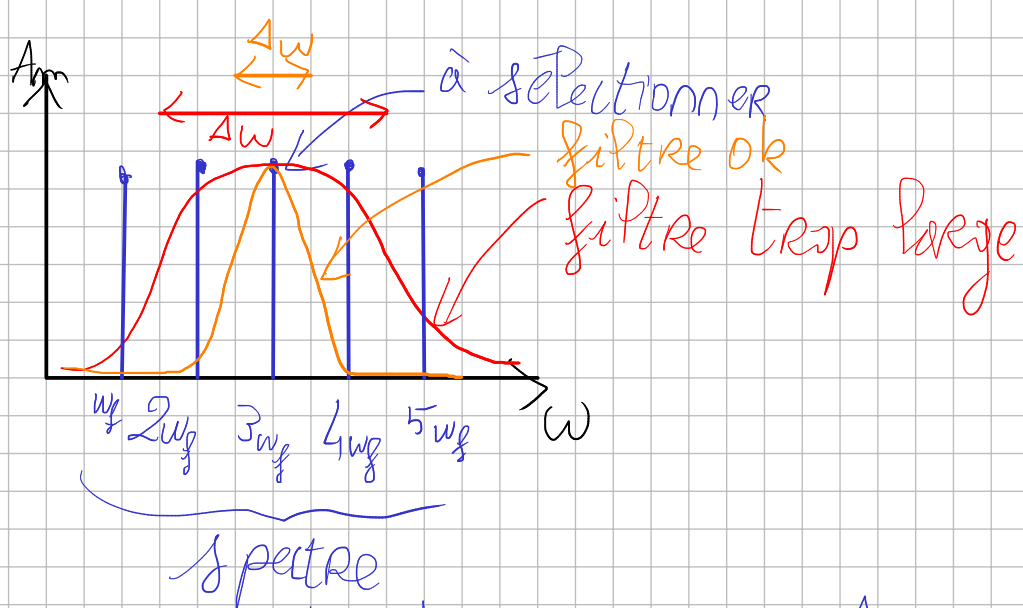 Δω
Am
à sélectionner
Δω
filtre ok
filtre trop large
ωf 2ωf 3ωf 4ωf 5ωf
ω
spectre